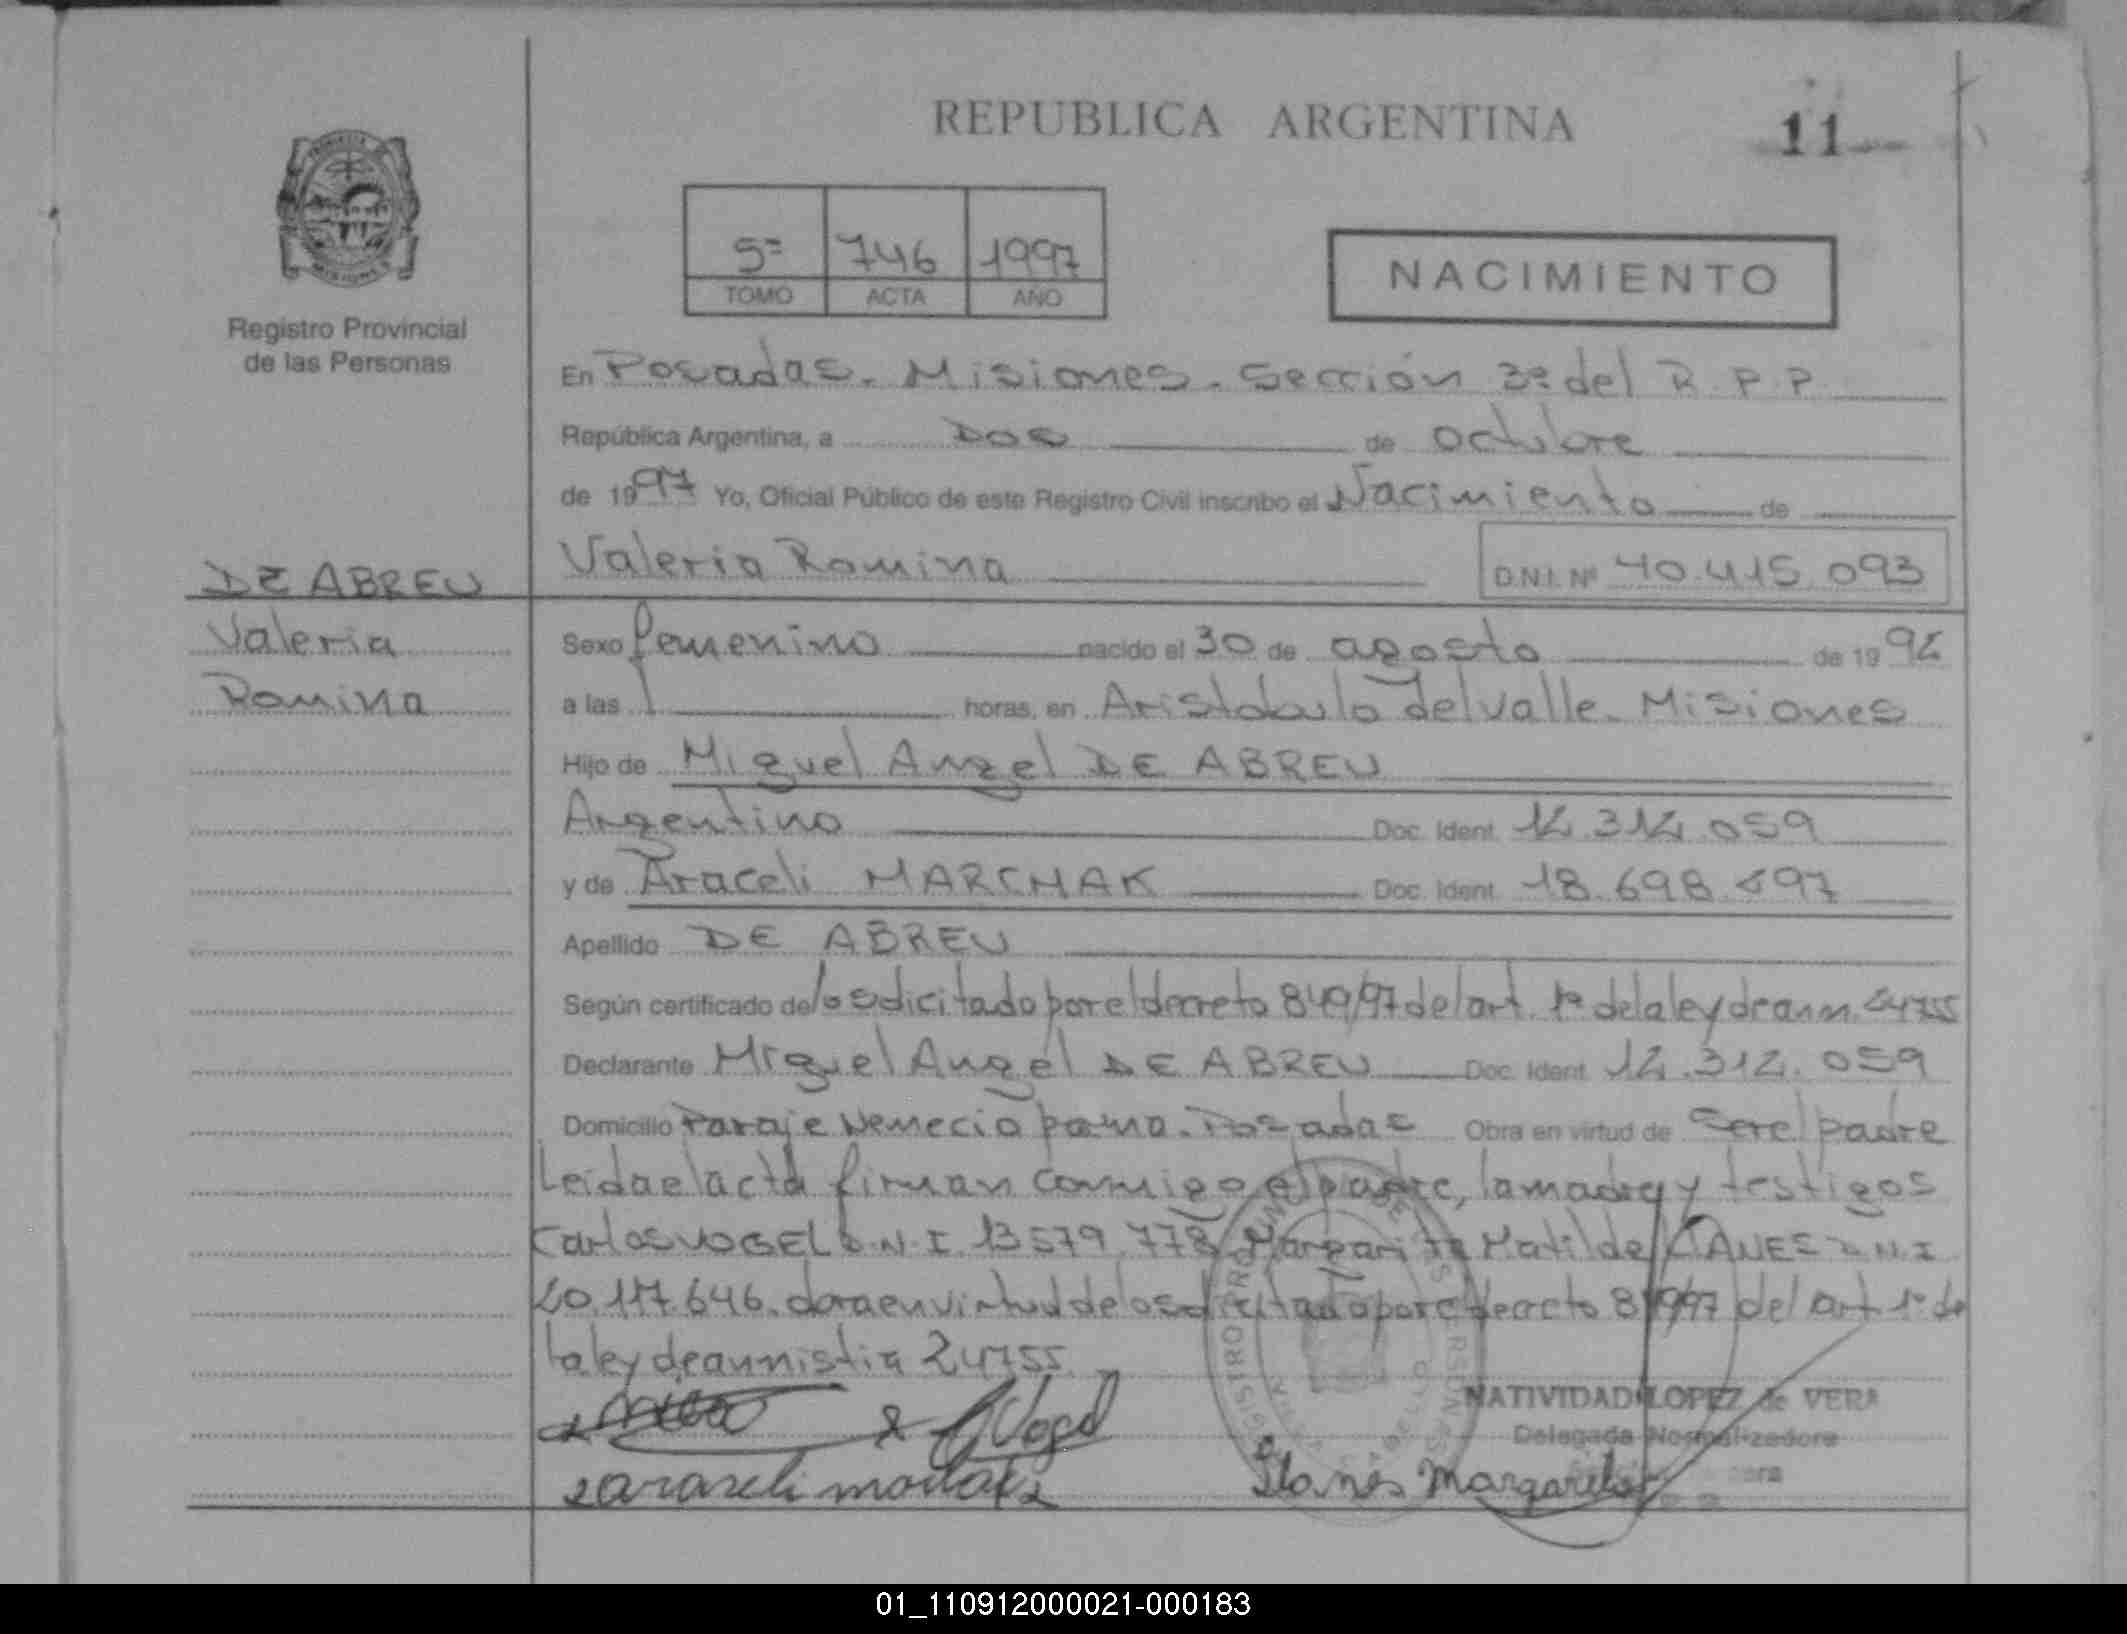 REPUBLICA ARGENTINA
11
5ª 746 1997
TOMO ACTA AÑO
NACIMIENTO
Registro Provincial
de las Personas
En Posadas. Misiones. Sección 3ª del R.P.P.
República Argentina, a Dos de octubre
de 1997 Yo, Oficial Público de este Registro Civil inscribo el Nacimiento de
DE ABREU
Valeria Romina D.N.I. Nº 40.415.093
Valeria
Sexo femenino nacido el 30 de agosto de 19
Romina
a las horas, en Aristobulo del valle. Misiones
Hijo de Miguel Angel DE ABREU
Argentino Doc. Ident. 12.312.059
y de Araceli MARCHAK Doc. Ident. 18.698.
Apellido DE ABREU
Según certificado de lo solicitado por el decreto 849/97 del art. 1º de la ley de amn. 24755
Declarante Miguel Angel DE ABREU Doc. Ident. 12.312.059
Domicilio Paraje Nemecio parma. Posadas Obra en virtud de Ser el padre
Leida el acta firman conmigo el padre, la madre y testigos
Carlos VOGEL D.N.I. 13.579.778 Margarita Matilde LLANES D.N.I.
20.117.646. obra en virtud de lo solicitado por el decreto 849/97 del art 1º de
la ley de amnistia 24755.
NATIVIDAD LOPEZ de VERA
Delegada Normalizadora
Llanes Margarita
01_110912000021-000183